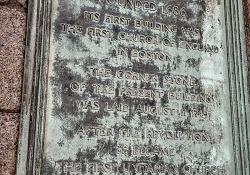 FOUNDED 1686
ITS FIRST BUILDING WAS
THE FIRST CHURCH OF ENGLAND
IN BOSTON
THE CORNER STONE
OF THE PRESENT BUILDING
WAS LAID AUGUST 11
AFTER THE REVOLUTION
IT BECAME
THE FIRST UNITARIAN CHURCH